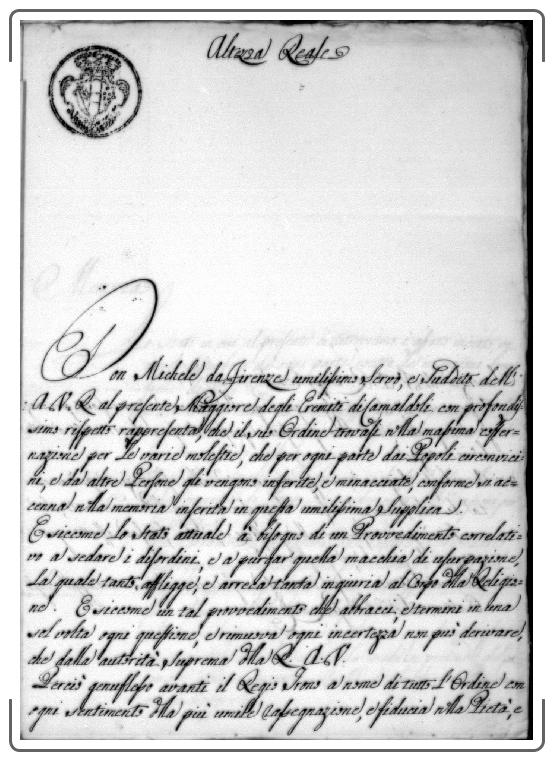 Altezza Reale
Don Michele da Firenze umilissimo Servo, e Suddito dell'
A. V. R. al presente Maggiore degli Eremiti di Camaldoli con profondis
simo rispetto rappresenta, che il suo Ordine trovasi nella massima coster-
nazione per le varie molestie, che per ogni parte dai Popoli circonvici-
ni, e da altre Persone gli vengono inferite, e minacciate, conforme si ac-
cenna nella memoria inserita in questa umilissima Supplica.
E siccome lo stato attuale à bisogno di un Provvedimento correlati-
vo a sedare i disordini, e a purgar quella macchia di usurpazione,
la quale tanto affligge, e arreca tanta ingiuria al Corpo della Religio-
ne. E siccome un tal provvedimento che abbracci, e termini in una
sol volta ogni questione, e rimuova ogni incertezza non può derivare,
che dalla autorità Suprema della R. A. V.
Perciò genuflesso avanti il Regio Trono a nome di tutto l'Ordine con
ogni sentimento della più umile rassegnazione, e fiducia nella Pietà, e